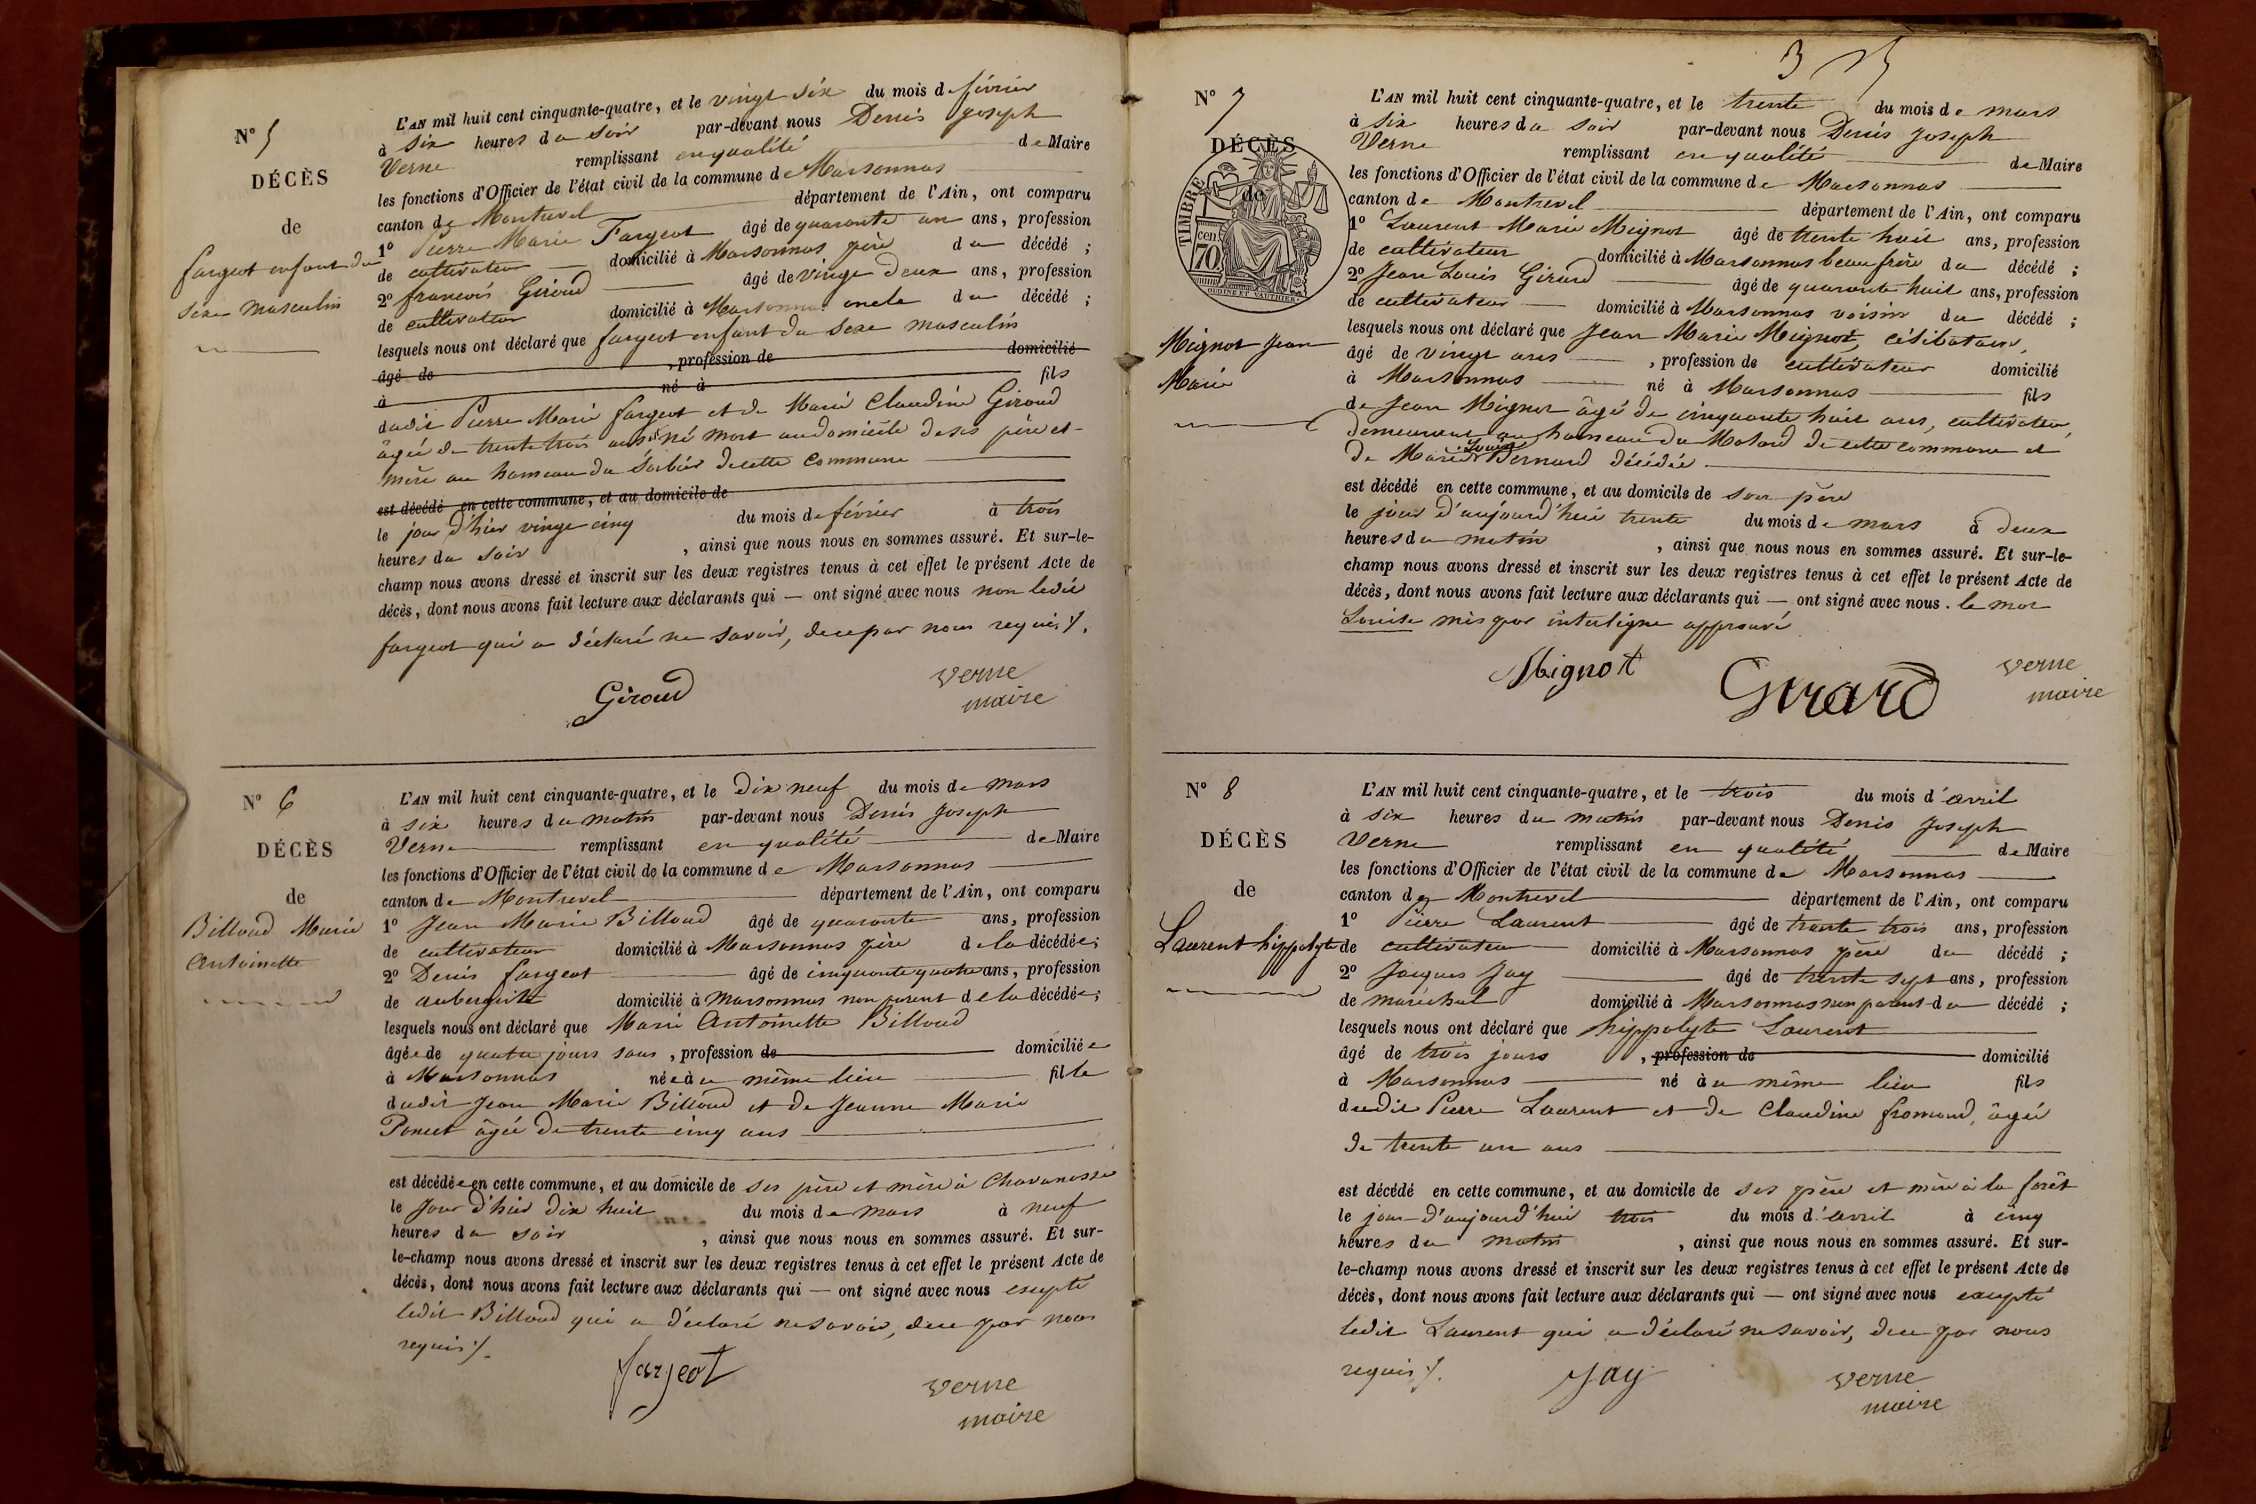 N° 5
DÉCÈS
de
fargeot enfant du
sexe masculin
L'AN mil huit cent cinquante-quatre, et le vingt six du mois de février
à six heures du soir par-devant nous Denis Joseph
Verne remplissant en qualité de Maire
les fonctions d'Officier de l'état civil de la commune de Marsonnas
canton de Montrevel département de l'Ain, ont comparu
1° Pierre Marie Fargeot âgé de quarante un ans, profession
de cultivateur domicilié à Marsonnas père du décédé ;
2° francois Giroud âgé de vingt deux ans, profession
de cultivateur domicilié à Marsonnas oncle du décédé ;
lesquels nous ont déclaré que fargeot enfant du sexe masculin
âgé de , profession de domicilié
à né à fils
dudit Pierre Marie fargeot et de Marie Claudine Giroud
âgée de trente trois ans est né mort au domicile de ses père et
mère au hameau du Sorbier de cette commune
est décédé en cette commune, et au domicile de
le jour d'hier vingt cinq du mois de février à trois
heures du soir , ainsi que nous nous en sommes assuré. Et sur-le-
champ nous avons dressé et inscrit sur les deux registres tenus à cet effet le présent Acte de
décès, dont nous avons fait lecture aux déclarants qui — ont signé avec nous non ledit
fargeot qui a déclaré ne savoir, de ce par nous requis ./.
Giroud
verne
maire
N° 6
DÉCÈS
de
Billoud Marie
Antoinette
L'AN mil huit cent cinquante-quatre, et le dix neuf du mois de mars
à six heures du matin par-devant nous Denis Joseph
Verne remplissant en qualité de Maire
les fonctions d'Officier de l'état civil de la commune de Marsonnas
canton de Montrevel département de l'Ain, ont comparu
1° Jean Marie Billoud âgé de quarante ans, profession
de cultivateur domicilié à Marsonnas père de la décédée ;
2° Denis fargeot âgé de cinquante quatre ans, profession
de aubergiste domicilié à Marsonnas non parent de la décédée ;
lesquels nous ont déclaré que Marie Antoinette Billoud
âgée de quatre jours sans , profession de domiciliée
à Marsonnas née à u même lieu fille
dudit Jean Marie Billoud et de Jeanne Marie
Poncet âgée de trente cinq ans
est décédée en cette commune, et au domicile de ses père et mère à Chavanosse
le jour d'hier dix huit du mois de mars à neuf
heures du soir , ainsi que nous nous en sommes assuré. Et sur-
le-champ nous avons dressé et inscrit sur les deux registres tenus à cet effet le présent Acte de
décès, dont nous avons fait lecture aux déclarants qui — ont signé avec nous excepté
ledit Billoud qui a déclaré ne savoir, de ce par nous
requis ./.
fargeot
verne
maire
3
N° 7
DÉCÈS
de
TIMBRE
cen.
70
OUDINE ET VAUTHIER
Mignot Jean
Marie
L'AN mil huit cent cinquante-quatre, et le trente du mois de mars
à six heures du soir par-devant nous Denis Joseph
Verne remplissant en qualité de Maire
les fonctions d'Officier de l'état civil de la commune de Marsonnas
canton de Montrevel département de l'Ain, ont comparu
1° Laurent Marie Mignot âgé de trente huit ans, profession
de cultivateur domicilié à Marsonnas beau frère du décédé ;
2° Jean Louis Girard âgé de quarante huit ans, profession
de cultivateur domicilié à Marsonnas voisin du décédé ;
lesquels nous ont déclaré que Jean Marie Mignot, célibataire,
âgé de vingt ans , profession de cultivateur domicilié
à Marsonnas né à Marsonnas fils
de Jean Mignot âgé de cinquante huit ans, cultivateur,
demeurant au hameau du Molard de cette commune et
de Marie Louise Bernard décédée
est décédé en cette commune, et au domicile de son père
le jour d'aujourd'hui trente du mois de mars à deux
heures du matin , ainsi que nous nous en sommes assuré. Et sur-le-
champ nous avons dressé et inscrit sur les deux registres tenus à cet effet le présent Acte de
décès, dont nous avons fait lecture aux déclarants qui — ont signé avec nous. le mot
Louise mis par interligne approuvé
Mignot
Girard
verne
maire
N° 8
DÉCÈS
de
Laurent hippolyte
L'AN mil huit cent cinquante-quatre, et le trois du mois d'avril
à six heures du matin par-devant nous Denis Joseph
Verne remplissant en qualité de Maire
les fonctions d'Officier de l'état civil de la commune de Marsonnas
canton de Montrevel département de l'Ain, ont comparu
1° Pierre Laurent âgé de trente trois ans, profession
de cultivateur domicilié à Marsonnas père du décédé ;
2° Jacques Jay âgé de trente sept ans, profession
de maréchal domicilié à Marsonnas non parent du décédé ;
lesquels nous ont déclaré que hippolyte Laurent
âgé de trois jours , profession de domicilié
à Marsonnas né à u même lieu fils
dudit Pierre Laurent et de Claudine fromond, âgée
de trente un ans
est décédé en cette commune, et au domicile de ses père et mère à la forêt
le jour d'aujourd'hui trois du mois d'avril à cinq
heures du matin , ainsi que nous nous en sommes assuré. Et sur-
le-champ nous avons dressé et inscrit sur les deux registres tenus à cet effet le présent Acte de
décès, dont nous avons fait lecture aux déclarants qui — ont signé avec nous excepté
ledit Laurent qui a déclaré ne savoir, de ce par nous
requis ./.
Jay
verne
maire